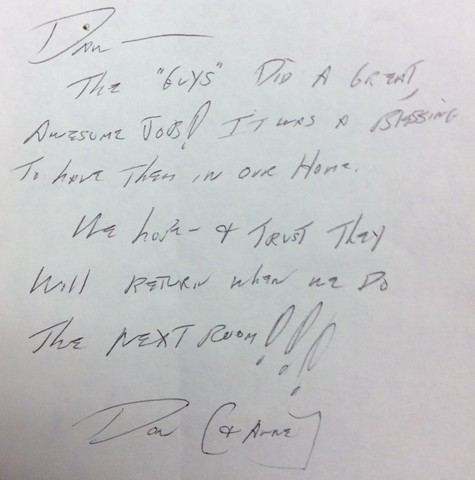 Dan —
The "Guys" Did A Great,
Awesome Job! It was a Blessing
To have Them in our Home.
We hope - & Trust They
Will return when we do
The next room!!!
Don (& Anne)